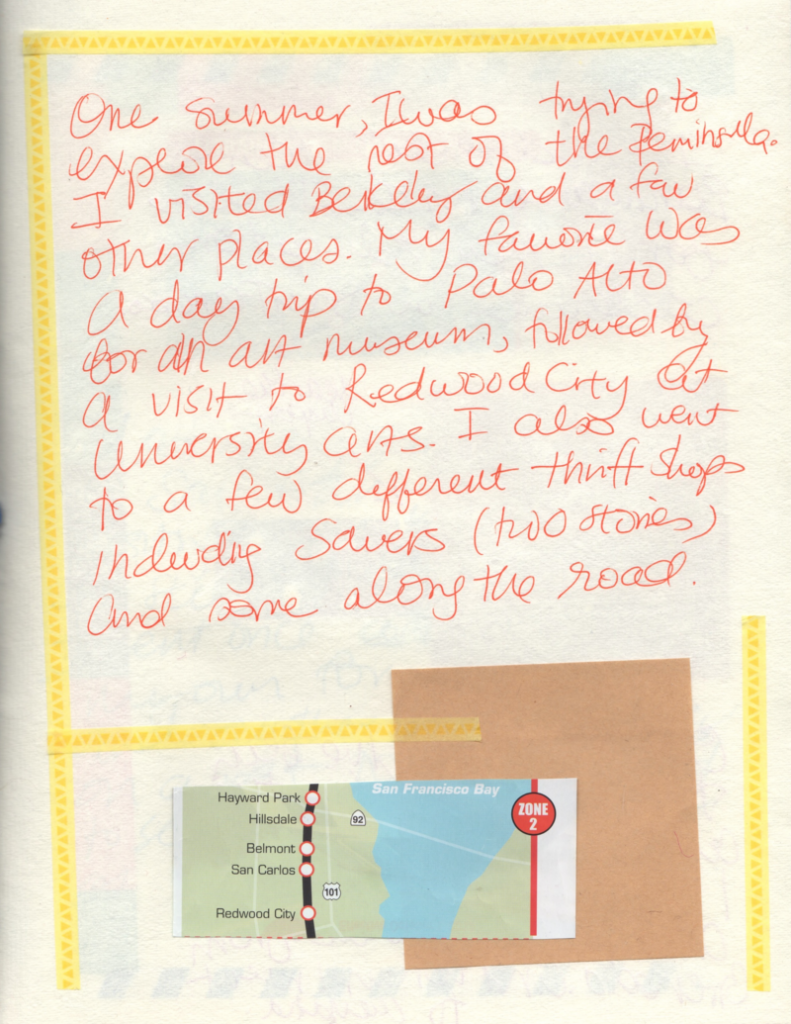 One summer, I was trying to
explore the rest of the Peninsula.
I visited Berkeley and a few
other places. My favorite was
a day trip to Palo Alto
for an art museum, followed by
a visit to Redwood City at
University Arts. I also went
to a few different thrift shops
including Savers (two stories)
and some along the road.
San Francisco Bay
Hayward Park
ZONE
2
Hillsdale
92
Belmont
San Carlos
101
Redwood City